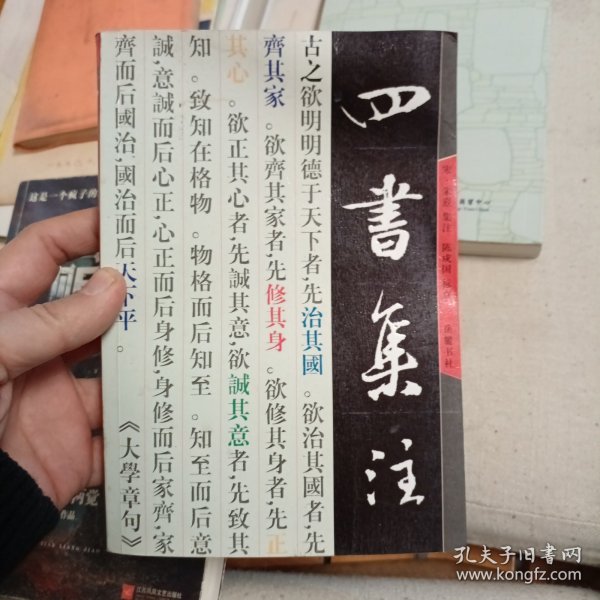 四書集注
宋 朱熹 集注 陈戍国
岳麓书社
古之欲明明德于天下者,先治其國。欲治其國者,先
齊其家。欲齊其家者,先修其身。欲修其身者,先正
其心。欲正其心者,先誠其意,欲誠其意者,先致其
知。致知在格物。物格而后知至。知至而后意
誠,意誠而后心正,心正而后身修,身修而后家齊,家
齊而后國治,國治而后天下平。
《大學章句》
这是一个疯子的
作品
江苏凤凰文艺出版社
孔夫子旧书网
www.kongfz.com